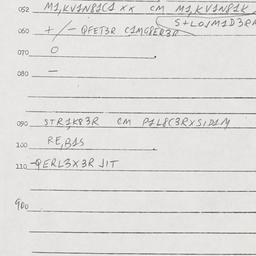 052 M1,KV1N81C1 xx CM M1,KV1N81K
S+LOJM1D3RA
060 +/- QFET3R C1MG8ER3R
070 O
080 —
090 STR1K83R CM P1L8C3RXS1D1M
100 RE,B1S
110 -QERL3X3R J1T
900